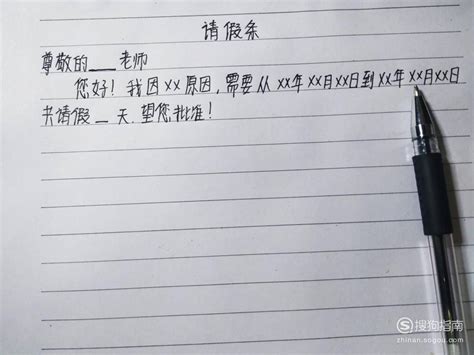 请假条
尊敬的___老师
您好！我因xx原因，需要从xx年xx月xx日到xx年xx月xx日
共请假_天.望您批准！
S搜狗指南
zhinan.sogou.com